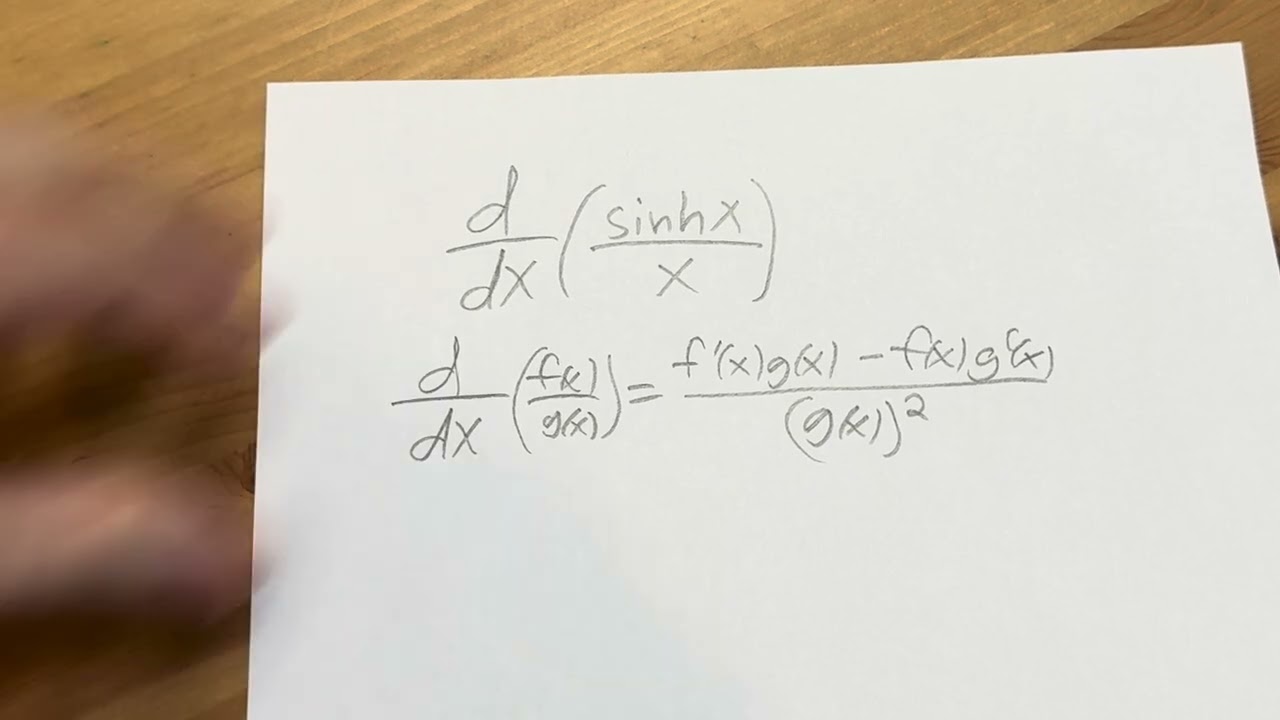 d/dx (sinhx/x)
d/dx (f(x)/g(x)) = (f'(x)g(x) - f(x)g'(x))/(g(x))²